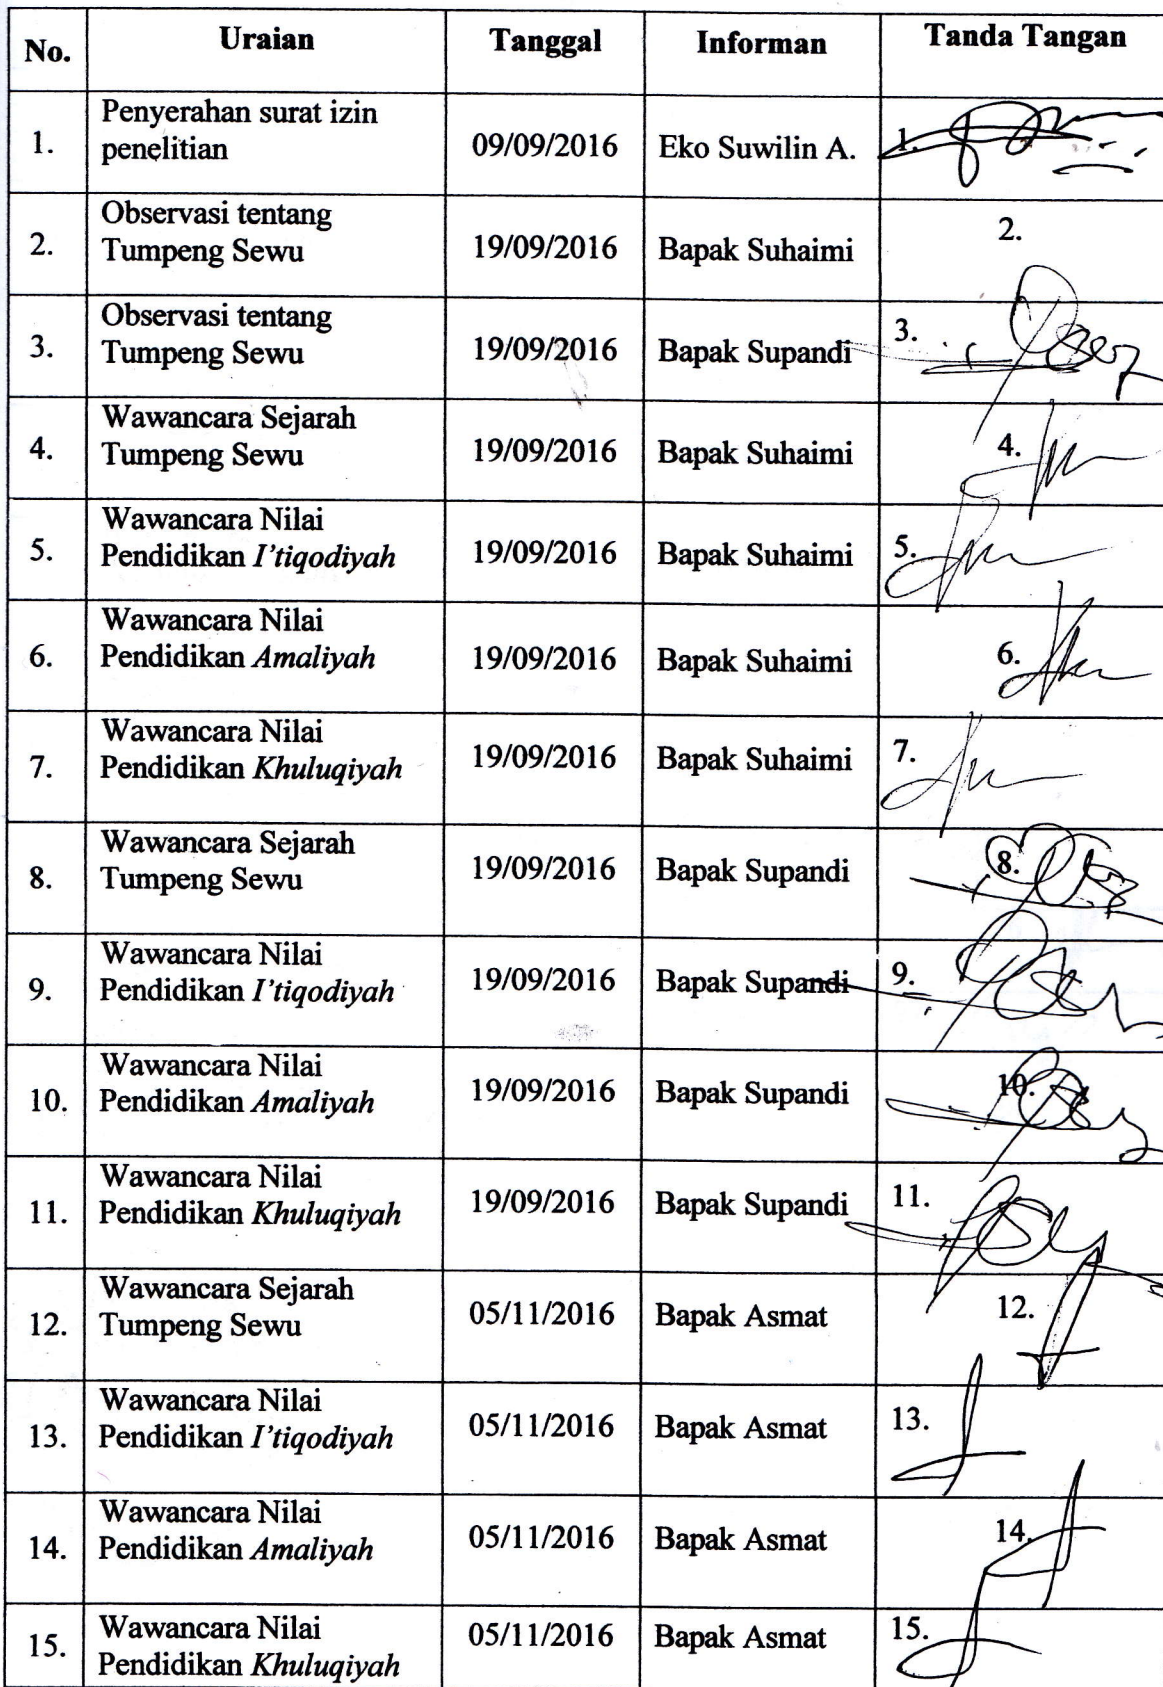 No. Uraian Tanggal Informan Tanda Tangan
1. Penyerahan surat izin
penelitian 09/09/2016 Eko Suwilin A. 1.
2. Observasi tentang
Tumpeng Sewu 19/09/2016 Bapak Suhaimi 2.
3. Observasi tentang
Tumpeng Sewu 19/09/2016 Bapak Supandi 3.
4. Wawancara Sejarah
Tumpeng Sewu 19/09/2016 Bapak Suhaimi 4.
5. Wawancara Nilai
Pendidikan I'tiqodiyah 19/09/2016 Bapak Suhaimi 5.
6. Wawancara Nilai
Pendidikan Amaliyah 19/09/2016 Bapak Suhaimi 6.
7. Wawancara Nilai
Pendidikan Khuluqiyah 19/09/2016 Bapak Suhaimi 7.
8. Wawancara Sejarah
Tumpeng Sewu 19/09/2016 Bapak Supandi 8.
9. Wawancara Nilai
Pendidikan I'tiqodiyah 19/09/2016 Bapak Supandi 9.
10. Wawancara Nilai
Pendidikan Amaliyah 19/09/2016 Bapak Supandi 10.
11. Wawancara Nilai
Pendidikan Khuluqiyah 19/09/2016 Bapak Supandi 11.
12. Wawancara Sejarah
Tumpeng Sewu 05/11/2016 Bapak Asmat 12.
13. Wawancara Nilai
Pendidikan I'tiqodiyah 05/11/2016 Bapak Asmat 13.
14. Wawancara Nilai
Pendidikan Amaliyah 05/11/2016 Bapak Asmat 14.
15. Wawancara Nilai
Pendidikan Khuluqiyah 05/11/2016 Bapak Asmat 15.